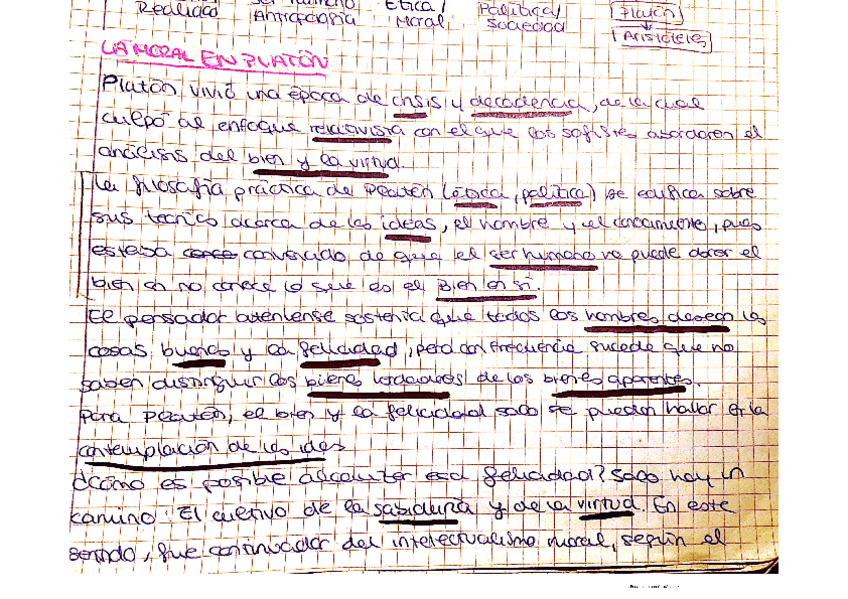 Realidad Ser humano Antropología Ética/ Moral Política/ Sociedad Platón
Aristóteles
LA MORAL EN PLATÓN
Platón vivió una época de crisis y decadencia, de la cual
culpó al enfoque relativista con el que los sofistas abordaron el
análisis del bien y la virtud.
La filosofía práctica de Platón (ética, política) se edifica sobre
sus teorías acerca de las ideas, el hombre y el conocimiento, pues
estaba convencido de que el ser humano no puede obrar el
bien si no conoce lo que es el Bien en sí.
El pensador ateniense sostenía que todos los hombres desean las
cosas buenas y la felicidad, pero con frecuencia sucede que no
saben distinguir los bienes verdaderos de los bienes aparentes.
Para Platón, el bien y la felicidad solo se pueden hallar en la
contemplación de las ideas
¿cómo es posible alcanzar esa felicidad? Solo hay un
camino: El cultivo de la sabiduría y de la virtud. En este
sentido, fue continuador del intelectualismo moral, según el